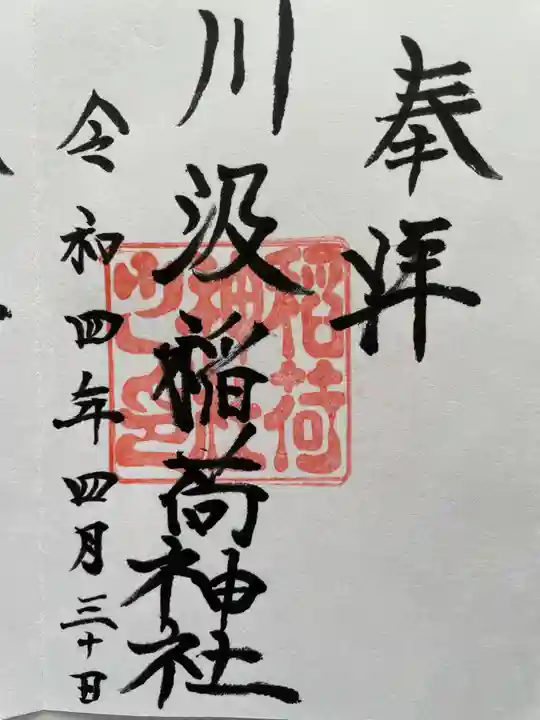 奉拝
川汲稲荷神社
令和四年四月三十日
稲荷
神社
之印